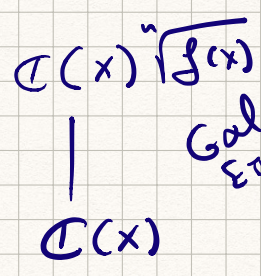 ℂ(x) ⁿ√f(x)
Gal
ℂ(x)